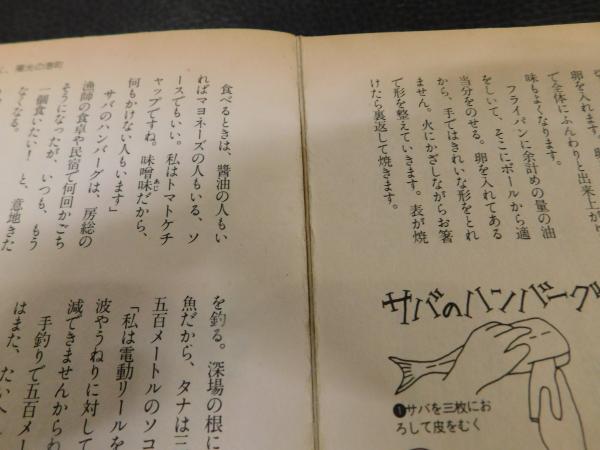 卵を入れます。
で全体にふんわりと出来上が
味もよくなります。
フライパンに余計めの量の油
をしいて、そこにボールから適
当分をのせる。卵を入れてある
から、手ではきれいな形をとれ
ません。火にかざしながらお箸
で形を整えていきます。表が焼
けたら裏返して焼きます。
サバのハンバーグ
❶サバを三枚にお
ろして皮をむく
陽光の港町
食べるときは、醬油の人もい
ればマヨネーズの人もいる、ソ
ースでもいい。私はトマトケチ
ャップですね。味噌味だから、
みそあじ
何もかけない人もいます」
サバのハンバーグは、房総の
漁師の食卓や民宿で何回かごち
そうになったが、いつも、もう
一個食いたい！と、意地きた
なくなる。
を釣る。深場の根に
魚だから、タナは三
五百メートルのソコ
「私は電動リールを
波やうねりに対して
減できませんからわ
手釣りで五百メー
はまた、たいへ